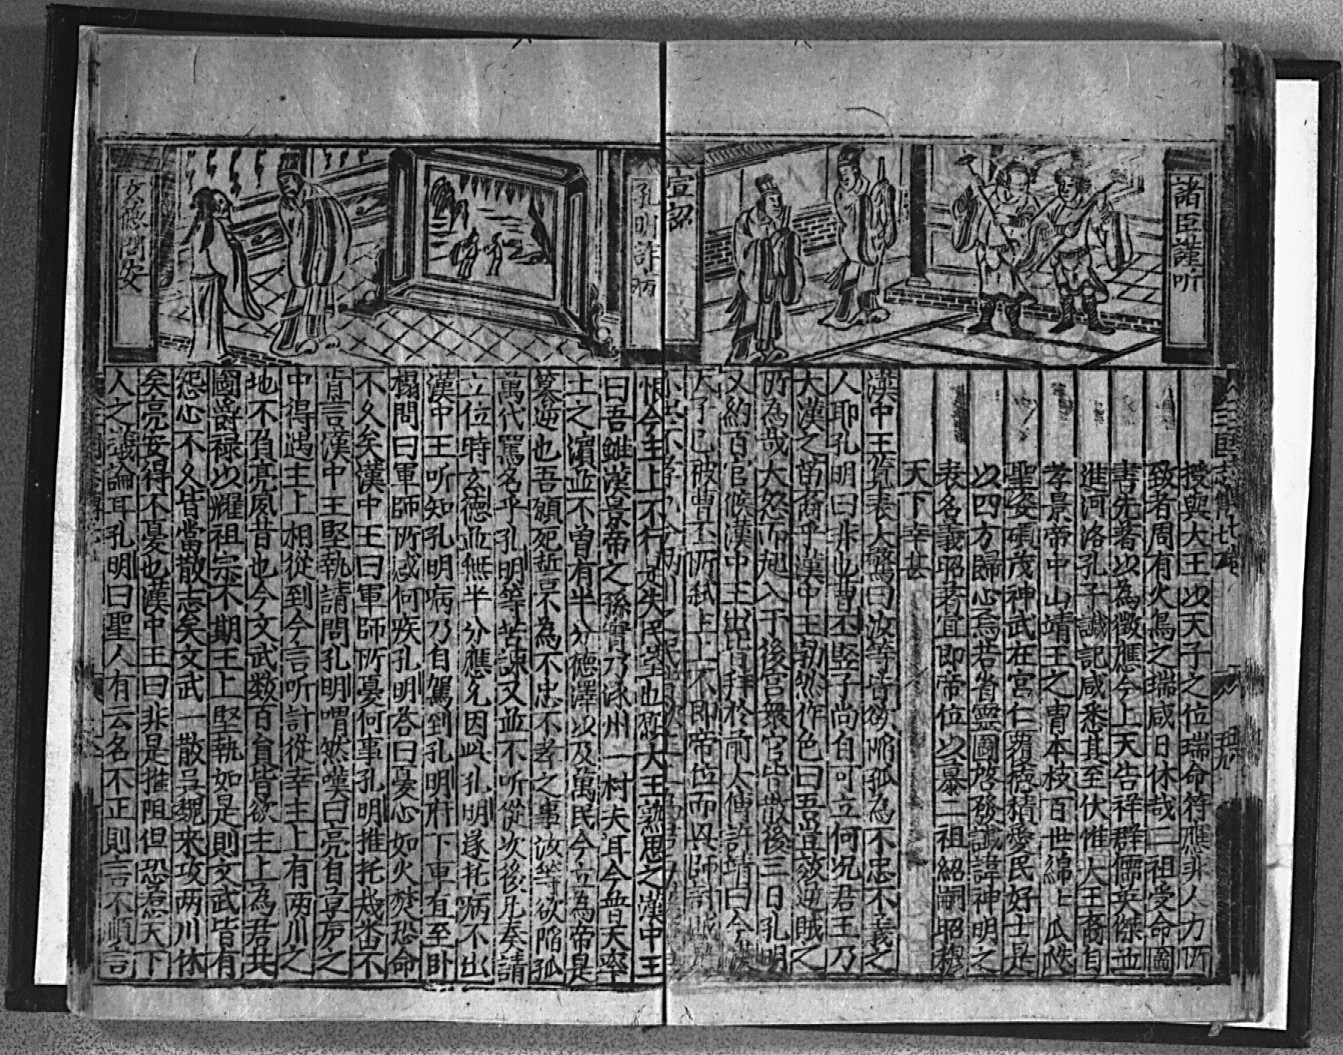 諸臣謹听
宣詔
授與大王以天子之位瑞命符應非人力所
致者周有火烏之瑞咸曰休哉二祖受命圖
書先著以為徵應今上天告祥群儒英傑並
進河洛孔子讖記咸悉其至伏惟大王裔自
孝景帝中山靖王之胄本枝百世綿七瓜瓞
聖姿碩茂神武在宮仁覆德積愛民好士是
以四方歸心焉若省靈圖啓發讖諱神明之
表名義昭著宜即帝位以纂二祖紹嗣昭穆
天下幸甚
漢中王覽表大驚曰汝等皆欲陷孤為不忠不義之
人耶孔明曰非也曹丕竪子尚自可立何况君王乃
大漢之苗裔乎漢中王勃然作色曰吾豈效逆賊之
所為哉大怒而起入于後宮眾官皆散後三日孔明
又約百官候漢中王出皆拜於前太傅許靖曰今漢
天子已被曹丕所弒上不即帝位而興師討
恨今主上不行是失民望也
曰吾雖漢景帝之孫實乃涿州一村夫耳今普天率
土之濱並不曾有半分德澤以及萬民今立為帝是
篡逆也吾願死誓不為不忠不孝之事汝等欲陷孤
萬代罵名乎孔明等苦諫又並不听從次後凡奏請
立位時玄德並無半分應允因此孔明遂托病不出
漢中王听知孔明病乃自駕到孔明府下車直至卧
榻問曰軍師所感何疾孔明答曰憂心如火焚恐命
不久矣漢中王曰軍師所憂何事孔明推托幾番不
肯言漢中王堅執請問孔明喟然嘆曰亮自草庐之
中得遇主上相從到今言听計從幸主上有两川之
地不負亮夙昔也今文武数百員皆欲主上為君共
國爵禄以耀祖宗不期王上堅執如是則文武皆有
怨心不久皆當散志矣文武一散吳魏來攻两川休
矣亮安得不憂也漢中王曰非是推阻但恐惹天下
人之議論耳孔明曰聖人有云名不正則言不順言
孔明詐病
玄德問安